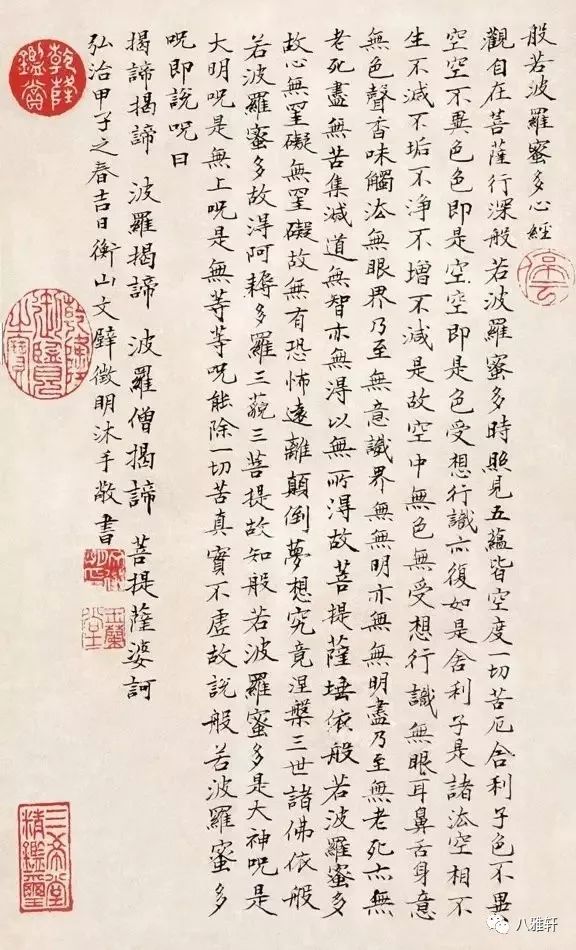 般若波羅蜜多心經
觀自在菩薩行深般若波羅蜜多時照見五蘊皆空度一切苦厄舍利子色不異
空空不異色色即是空空即是色受想行識亦復如是舍利子是諸法空相不
生不滅不垢不淨不增不減是故空中無色無受想行識無眼耳鼻舌身意
無色聲香味觸法無眼界乃至無意識界無無明亦無無明盡乃至無老死亦無
老死盡無苦集滅道無智亦無得以無所得故菩提薩埵依般若波羅蜜多
故心無罣礙無罣礙故無有恐怖遠離顛倒夢想究竟涅槃三世諸佛依般
若波羅蜜多故得阿耨多羅三藐三菩提故知般若波羅蜜多是大神呪是
大明呪是無上呪是無等等呪能除一切苦真實不虛故說般若波羅蜜多
呪即說呪曰
揭諦揭諦 波羅揭諦 波羅僧揭諦 菩提薩婆訶
弘治甲子之春吉日衡山文璧徵明沐手敬書
乾隆鑑賞
乾隆御覽之寶
玉蘭堂
三希堂精鑑璽
八雅轩